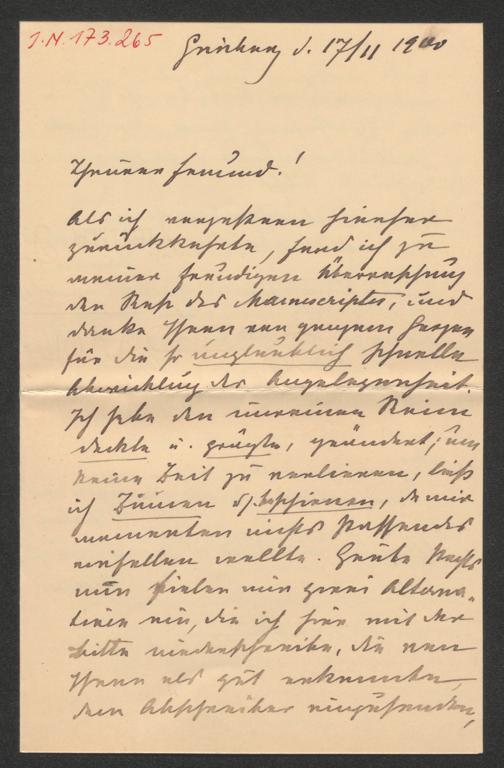 I.N. 173.265
d. 17/11 1900
Theurer Freund!
Als ich vorgestern hieher
zurückkehrte, fand ich zu
meiner freudigen Überraschung
den Rest des Manuscriptes, und
danke Ihnen von ganzem Herzen
für die so unglaublich schnelle
Abwicklung der Angelegenheit.
Ich habe den unreinen Reim
deckte u. prägte, geändert; um
keine Zeit zu verlieren, ließ
ich erschienen, da mir
momentan nichts Passendes
einfallen wollte. Heute Nachts
nun fielen mir zwei Alterna-
tiven ein, die ich hier mit der
Bitte niederschreibe, die von
Ihnen als gut erkannte,
dem Abschreiber einzusenden,